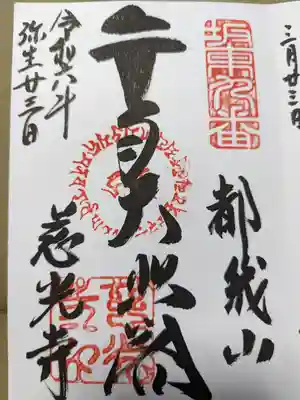 三月廿三日
坂東九番
都幾山
千手大悲閣
慈光寺
令和六年
弥生廿三日